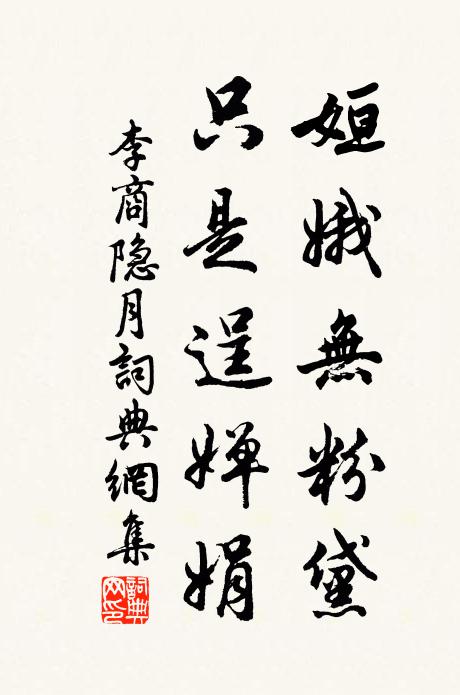 姮娥無粉黛
只是逞嬋娟
李商隐月詞典網集
詞典網印